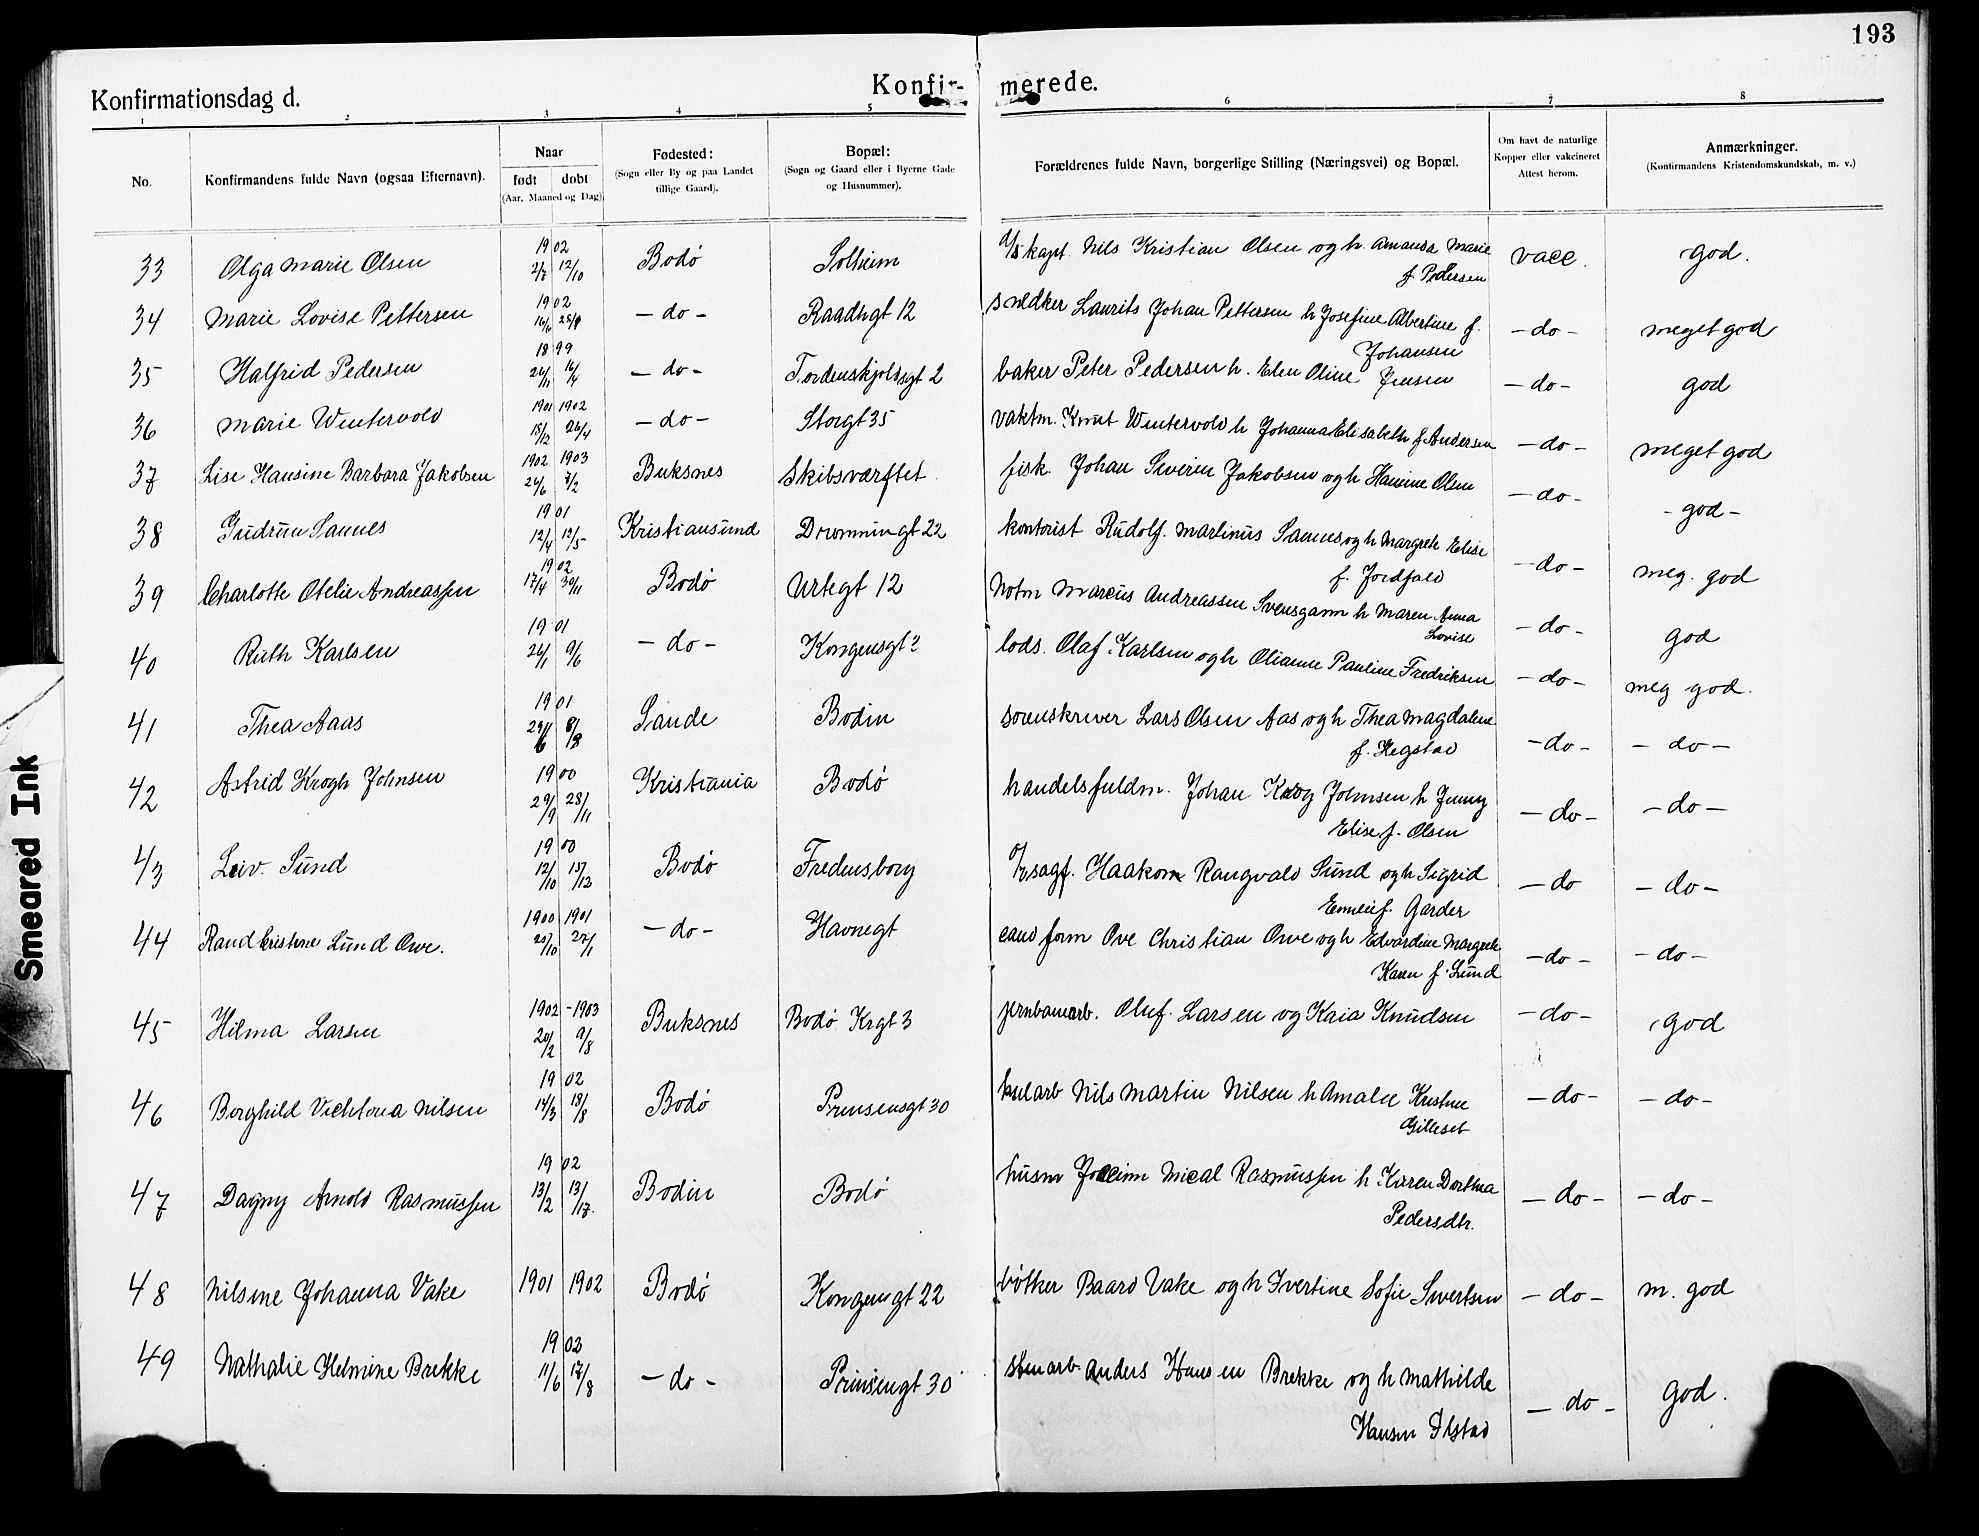 193
Konfirmationsdag d.
Konfir-
merede.
1 2 3 4 5 6 7 8
No.
Konfirmandens fulde Navn (ogsaa Efternavn).
Naar
født døbt
(Aar, Maaned og Dag)
Fødested:
(Sogn eller By og paa Landet
tillige Gaard).
Bopæl:
(Sogn og Gaard eller i Byerne Gade
og Husnummer).
Forældrenes fulde Navn, borgerlige Stilling (Næringsvei) og Bopæl.
Om havt de naturlige
Kopper eller vakcineret
Attest herom.
Anmærkninger.
(Konfirmandens Kristendomskundskab, m. v.)
33 Olga Marie Olsen 1902 2/7 12/10 Bodø Solheim kapt. Nils Kristian Olsen og h. Amanda Marie vacc. god.
f Pedersen
34 Marie Lovise Pettersen 1902 16/6 - do - Raadhgt 12 snedker Laurits Johan Pettersen h Josefine Albertine f. - do - meget god
Johansen
35 Halfrid Pedersen 1899 16/4 - do - Tordenskjoldsgt 2 baker Peter Pedersen h. Elen Oline Jensen - do - god
36 Marie Wintervold 1901 1902 15/12 26/4 - do - Storgt 35 vaktm. Knut Wintervold h Johanna Elisabeth f Andersen - do - meget god
37 Lise Hansine Barbara Jakobsen 1902 1903 26/6 7/2 Buksnes Skibsværftet fisk. Johan Severin Jakobsen og h Hansine Olsen - do - - god -
38 Gudrun Sannes 1901 12/4 12/5 Kristiansund Dronningt 22 kontorist Rudolf Martinus Sannes og h Margreth Elise - do - meg. god
f. Jordfald
39 Charlotte Otelie Andreassen 1902 17/4 30/11 Bodø Urtegt 12 Notm Marcus Andreassen Svensgarm h Maren Anna - do - god
Lovise
40 Ruth Karlsen 1901 26/1 9/6 - do - Kongensgt 2 lods. Olaf Karlsen og h Olianne Pauline Fredriksen - do - meg god.
41 Thea Aaas 1901 29/6 8/8 Sande Bodin sorenskriver Lars Olsen Aas og h Thea Magdalene - do - - do -
f. Hegstad
42 Astrid Krogh Johnsen 1900 29/9 28/11 Kristiania Bodø handelsfuldm. Johan Krog Johnsen h Jenny - do - - do -
Elise f. Olsen
43 Liv. Sund 1900 12/10 15/12 Bodø Fredensborg o/rsagf. Haakon Rangvald Sund og h Sigrid - do - do -
f. Garder
44 Rand Cristine Lund Owe. 1900 1901 25/10 27/1 - do - Havnegt cand form Ove Christian Owe og h Edvardine Margrete - do - - do -
Karen f. Lund
45 Hilma Larsen 1902 - 1903 20/2 9/8 Buksnes Bodø Krgt 3 jernbanearb. Oluf. Larsen og Kaia Knudsen - do - god
46 Borghild Vichtoria Nilsen 1902 14/3 18/8 Bodø Prinsensgt 30 kularb Nils Martin Nilsen h Amalie Kristine - do - - do -
Gilleset
47 Dagny Arnold Rasmussen 1902 13/2 13/17. Bodin Bodø husm Jocim Mical Rasmussen h Karen Dorthea - do - - do -
Pedersdtr.
48 Nilsine Johanna Vake 1901 1902 Bodø Kongensgt 22 bøtker Baard Vake og h Ivertine Sofie Sivertsen - do - m. god
49 Nathalie Helmine Brekke 1902 11/6 17/8 - do - Prinsengt 30 stenarb. Anders Hansen Brekke og h Mathilde - do - god.
Hansen Ilstad
Smeared Ink